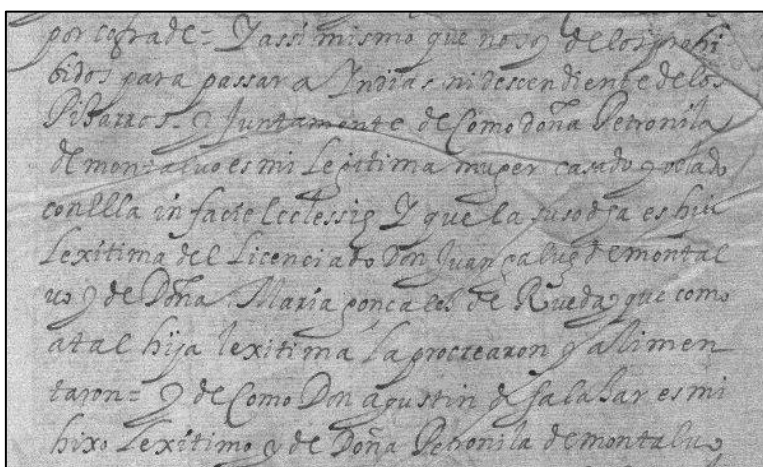 por cofrade= Y assi mismo que no soy de los prohi
bidos para passar a Yndias ni descendiente de los
Pisarros- y Juntamente de Como doña Petronila
de montaluo es mi legitima muger casado y velado
con ella in facie Eclessię Y que la susodha es hija
Lexitima del Licenciado Don Juan galuez de montal
uo y de Doña Maria gonçales de Rueda y que como
a tal hija lexitima la procrearon y allimen
taron= y de Como Don agustin de salasar es mi
hixo Lexitimo y de Doña Petronila de montaluo